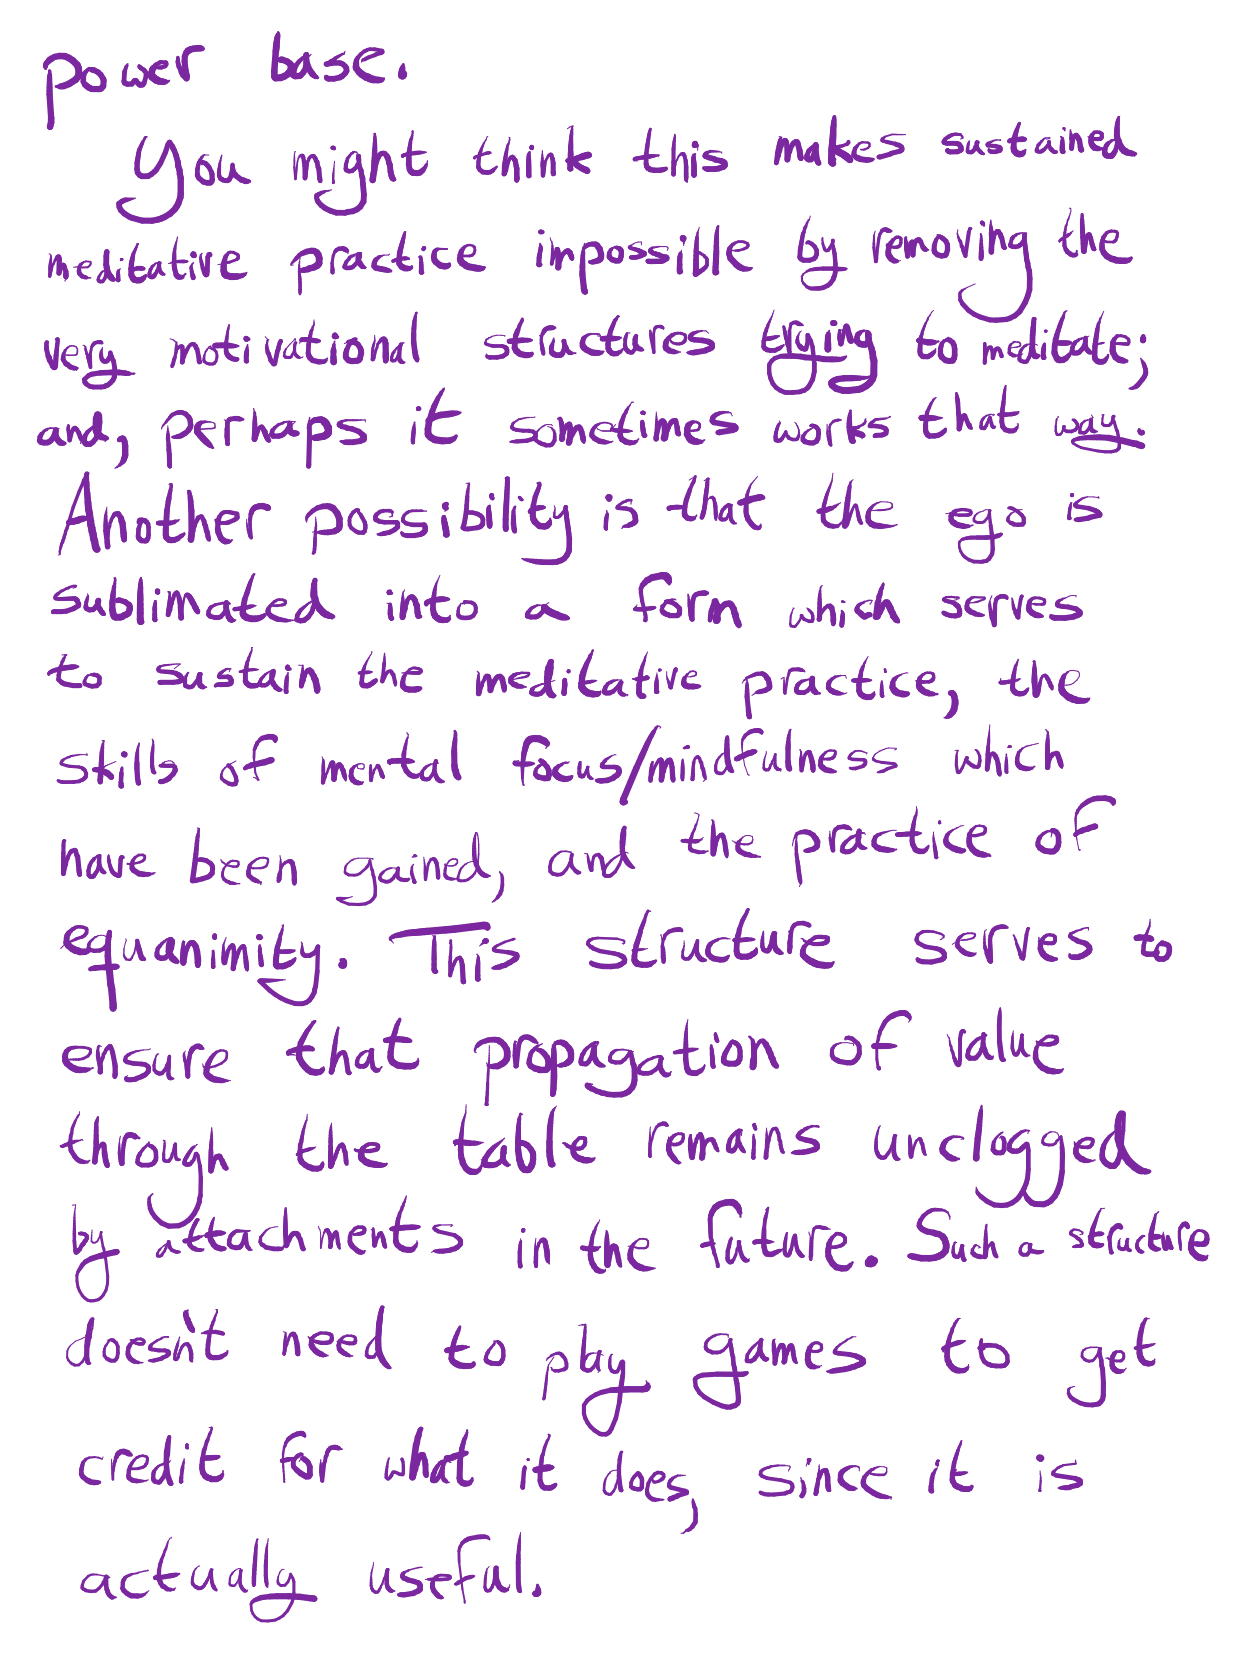 power base.
You might think this makes sustained
meditative practice impossible by removing the
very motivational structures trying to meditate;
and, perhaps it sometimes works that way.
Another possibility is that the ego is
sublimated into a form which serves
to sustain the meditative practice, the
skills of mental focus/mindfulness which
have been gained, and the practice of
equanimity. This structure serves to
ensure that propagation of value
through the table remains unclogged
by attachments in the future. Such a structure
doesn't need to play games to get
credit for what it does, since it is
actually useful.